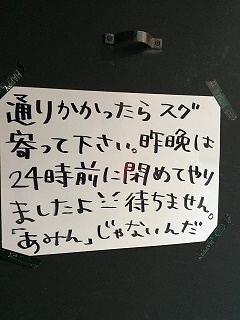 通りかかったら スグ
寄って下さい。昨晩は
24時前に閉めてやり
ましたよ!! 待ちません。
「あみん」じゃないんだ